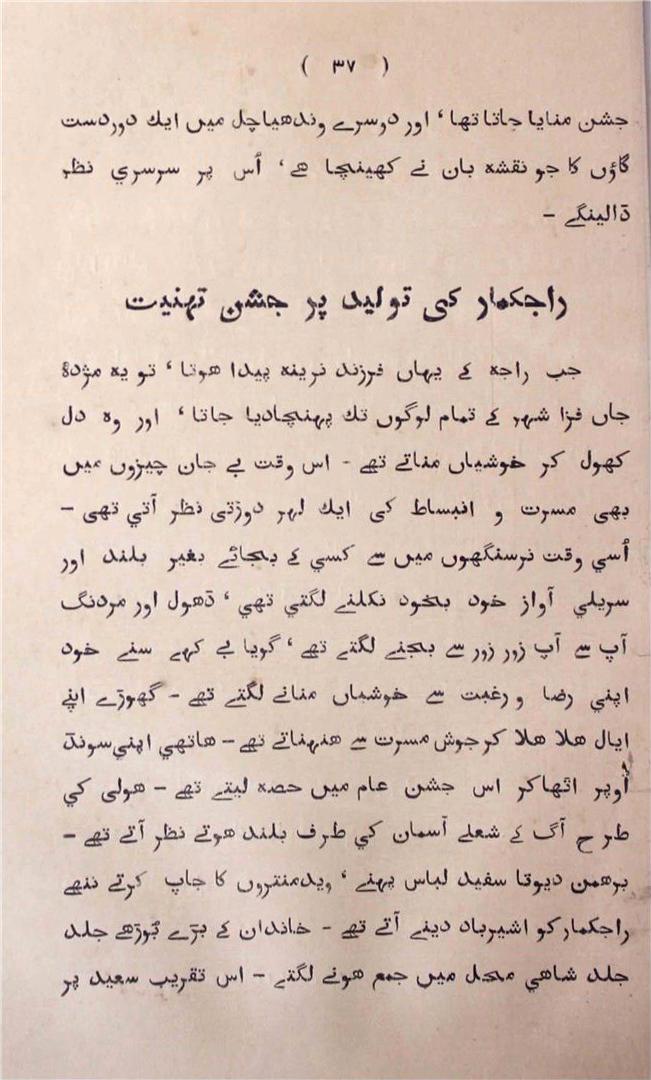 ( ۳۷ )
جشن منایا جاتا تھا ، اور دوسرے وندھیاچل میں ایک دوردست
گاؤں کا جو نقشہ بان نے کھینچا ھے ، اُس پر سرسری نظر
ڈالینگے -
راجکمار کی تولید پر جشن تہنیت
جب راجہ کے یہاں فرزند نرینہ پیدا ھوتا ، تو یہ مژدۂ
جاں فزا شہر کے تمام لوگوں تک پہنچادیا جاتا ، اور وہ دل
کھول کر خوشیاں مناتے تھے - اس وقت بے جان چیزوں میں
بھی مسرت و انبساط کی ایک لہر دوڑتی نظر آتی تھی -
اُسی وقت نرسنگھوں میں سے کسی کے بجائے بغیر بلند اور
سریلی آواز خود بخود نکلنے لگتی تھی ، ڈھول اور مردنگ
آپ سے آپ زور زور سے بجنے لگتے تھے ، گویا بے کہے سنے خود
اپنی رضا و رغبت سے خوشیاں منانے لگتے تھے - گھوڑے اپنے
ایال ھلا ھلا کر جوش مسرت سے ھنہناتے تھے - ھاتھی اپنی سونڈ
اُوپر اٹھاکر اس جشن عام میں حصہ لیتے تھے - ھولی کی
طرح آگ کے شعلے آسمان کی طرف بلند ھوتے نظر آتے تھے -
برھمن دیوتا سفید لباس پہنے ، ویدمنتروں کا جاپ کرتے ننھے
راجکمار کو اشیرباد دینے آتے تھے - خاندان کے بڑے بُوڑھے جلد
جلد شاھی محل میں جمع ھونے لگتے - اس تقریب سعید پر